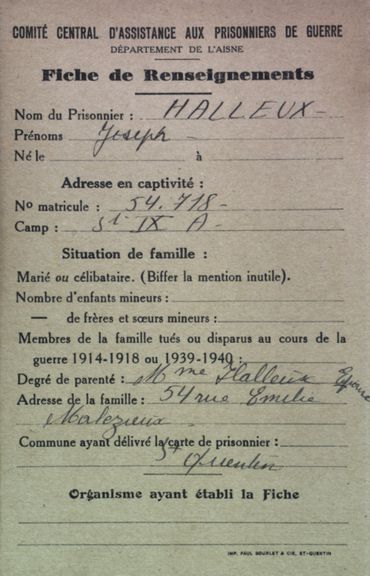 COMITÉ CENTRAL D'ASSISTANCE AUX PRISONNIERS DE GUERRE
DÉPARTEMENT DE L'AISNE
Fiche de Renseignements
Nom du Prisonnier : HALLEUX
Prénoms Joseph
Né le à
Adresse en captivité :
Nº matricule : 54.718
Camp : St IX A
Situation de famille :
Marié ou célibataire. (Biffer la mention inutile).
Nombre d'enfants mineurs :
— de frères et sœurs mineurs :
Membres de la famille tués ou disparus au cours de la
guerre 1914-1918 ou 1939-1940 :
Degré de parenté : Mme Halleux Epouse
Adresse de la famille : 54 rue Emilie
Malezieux
Commune ayant délivré la carte de prisonnier :
St Quentin
Organisme ayant établi la Fiche
IMP. PAUL DOURLET & CIE, ST-QUENTIN